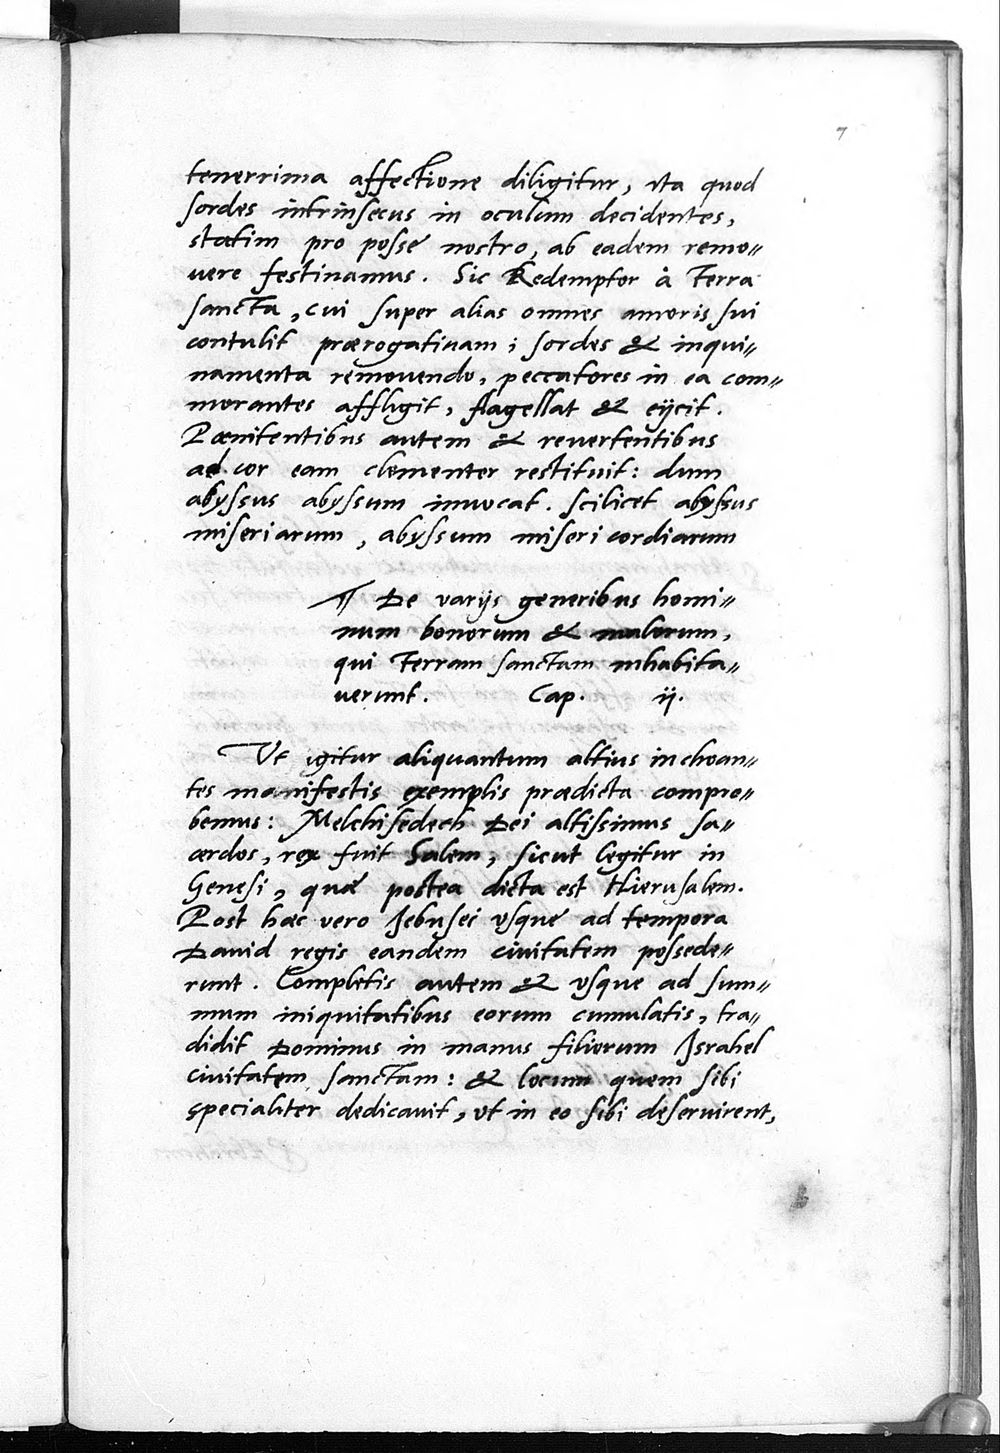 7
tenerrima affectione diligitur, vta quod
sordes intrinsecus in oculum decidentes,
statim pro posse nostro, ab eadem remo〃
uere festinamus. Sic Redemptor à Terra
sancta, cui super alias omnes amoris sui
contulit prærogatiuam; sordes & inqui〃
namenta remouendo, peccatores in ea com〃
morantes affligit, flagellat & eijcit.
Pœnitentibus autem & reuertentibus
ad cor eam clementer restituit: dum
abyssus abyssum inuocat. scilicet abyssus
miseriarum, abyssum misericordiarum
¶ De varijs generibus homi〃
num bonorum & malorum,
qui Terram sanctam inhabita〃
uerunt. Cap. ij.
Vt igitur aliquantum altius inchoan〃
tes manifestis exemplis prædicta compro〃
bemus: Melchisedech Dei altissimus sa〃
cerdos, rex fuit Salem, sicut legitur in
Genesi, quæ postea dicta est Hierusalem.
Post hæc vero Jebusei vsque ad tempora
Dauid regis eandem ciuitatem possede〃
runt. Completis autem & vsque ad sum〃
mum iniquitatibus eorum cumulatis, tra〃
didit Dominus in manus filiorum Israhel
ciuitatem sanctam: & locum quem sibi
specialiter dedicauit, vt in eo sibi deseruirent,